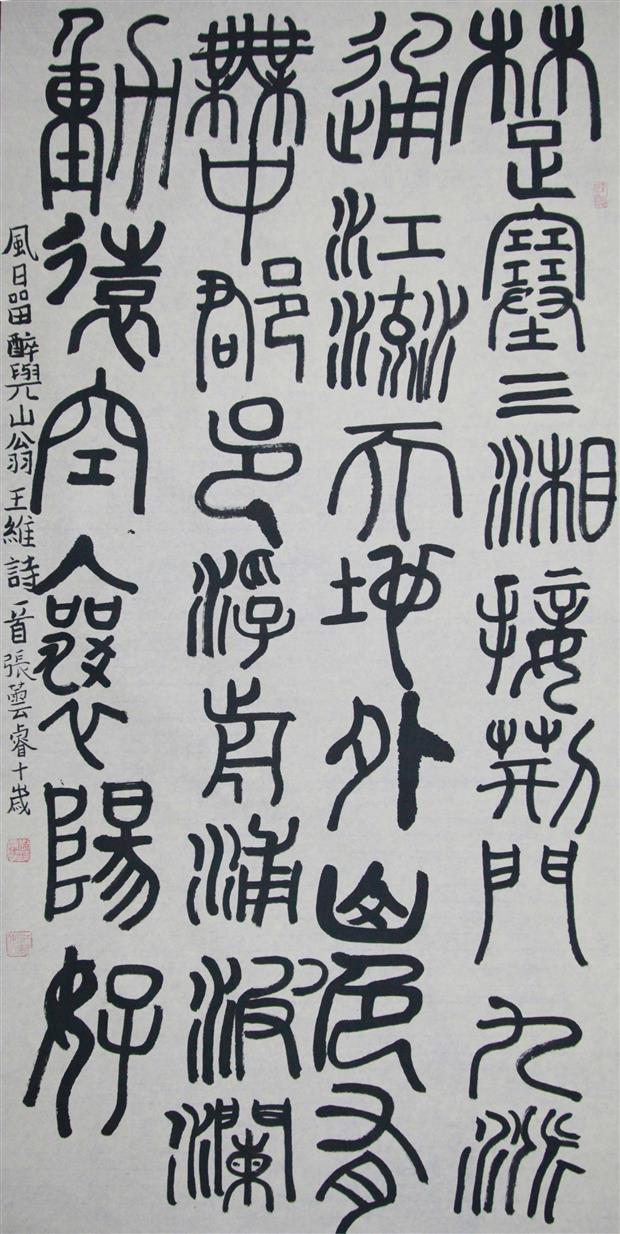 楚塞三湘接荊門九派
通江流天地外山色有
無中郡邑浮前浦波瀾
動遠空襄陽好
風日留醉與山翁王維詩一首張蕓睿十歲